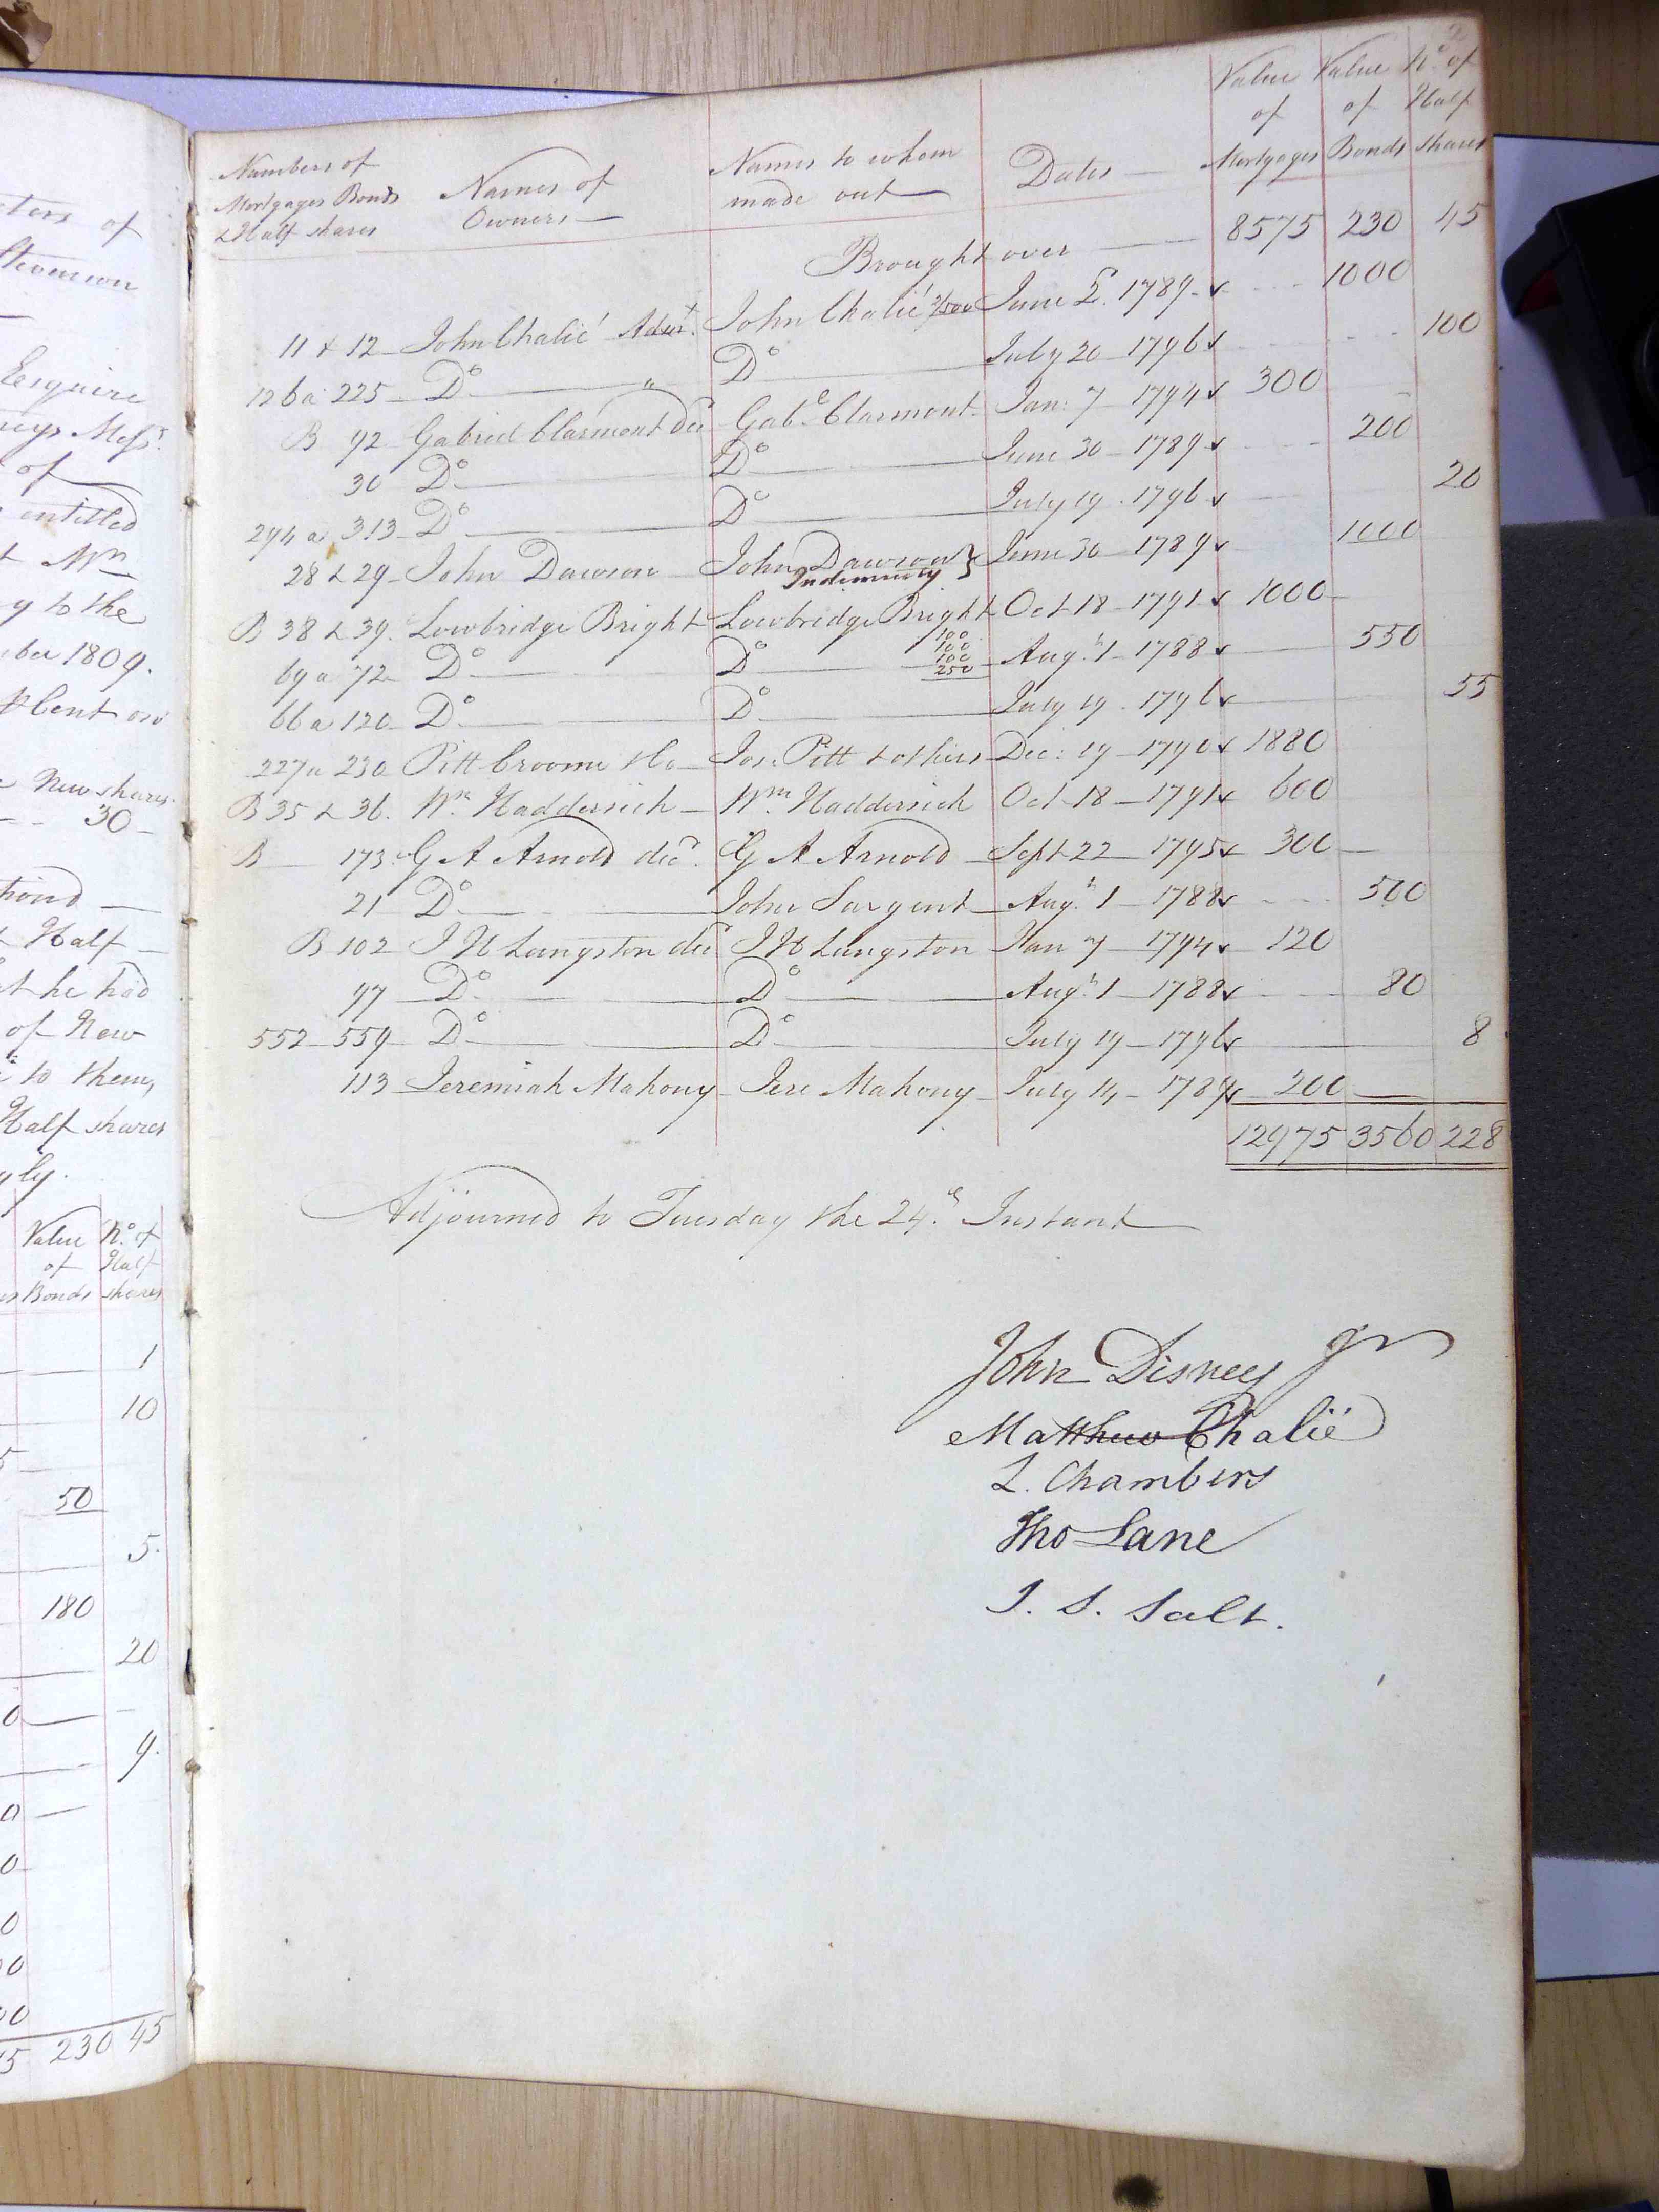 ctors of
Stevenson
Esquire
neys Mess.rs
of
entitled
t Wm
y to the
ber 1809.
P Cent on
New shares.
30
tion
Half
t he had
of New
to them,
Half shares
gly.
Value N.o of
of Half
Bonds shares
1
10
50
5.
180
20
0
9.
0
0
0
00
00
75 230 45
2
Numbers of Mortgages Bonds & Half shares Names of Owners Names to whom made out Dates Value of Mortgages Value of Bonds N.o of Half shares
Brought over 8575 230 45
11 & 12 John Chalié Admr. John Chalié 2/500 June 5. 1789 1000
126 a 225 Do " Do July 20 1796 100
B 92 Gabriel Clarmont decd Gabe. Clarmont Jan: 7 1794 300
30 Do Do June 30 1789 200
294 a 313 Do Do July 19. 1796 20
28 & 29 John Dawson John Dawson } June 30 1789 1000
Indemnity
B 38 & 39. Lowbridge Bright Lowbridge Bright Oct 18 1791 1000
69 a 72 Do Do 100 100 100 250 Aug.t 1 1788 550
66 a 120 Do Do July 19. 1796 55
227 a 230 Pitt Croome & Co Jos. Pitt & others Dec: 19 1790 1880
B 35 & 36. Wm. Haddersich Wm. Haddersich Oct 18 1791 600
B 173 G A Arnold decd. G A Arnold Sept 22 1795 300
21 Do John Sargent Aug.t 1 1788 500
B 102 J H Langston decd J H Langston Jan 7 1794 120
97 Do Do Aug.t 1 1788 80
552 559 Do Do July 19 1796 8
113 Jeremiah Mahony Jere Mahony July 14 1789 200
12975 3560 228
Adjourned to Tuesday the 24.th Instant
John Disney Jnr
Matthew Chalié
L. Chambers
Tho Lane
J. S. Salt.